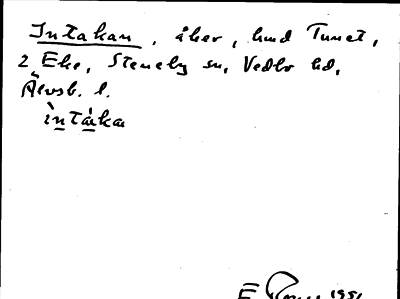 Intakan, åker, hmd Tunet,
2 Eke, Steneby sn, Vedbo hd,
Älvsb. l.
ìntáka
E 1991